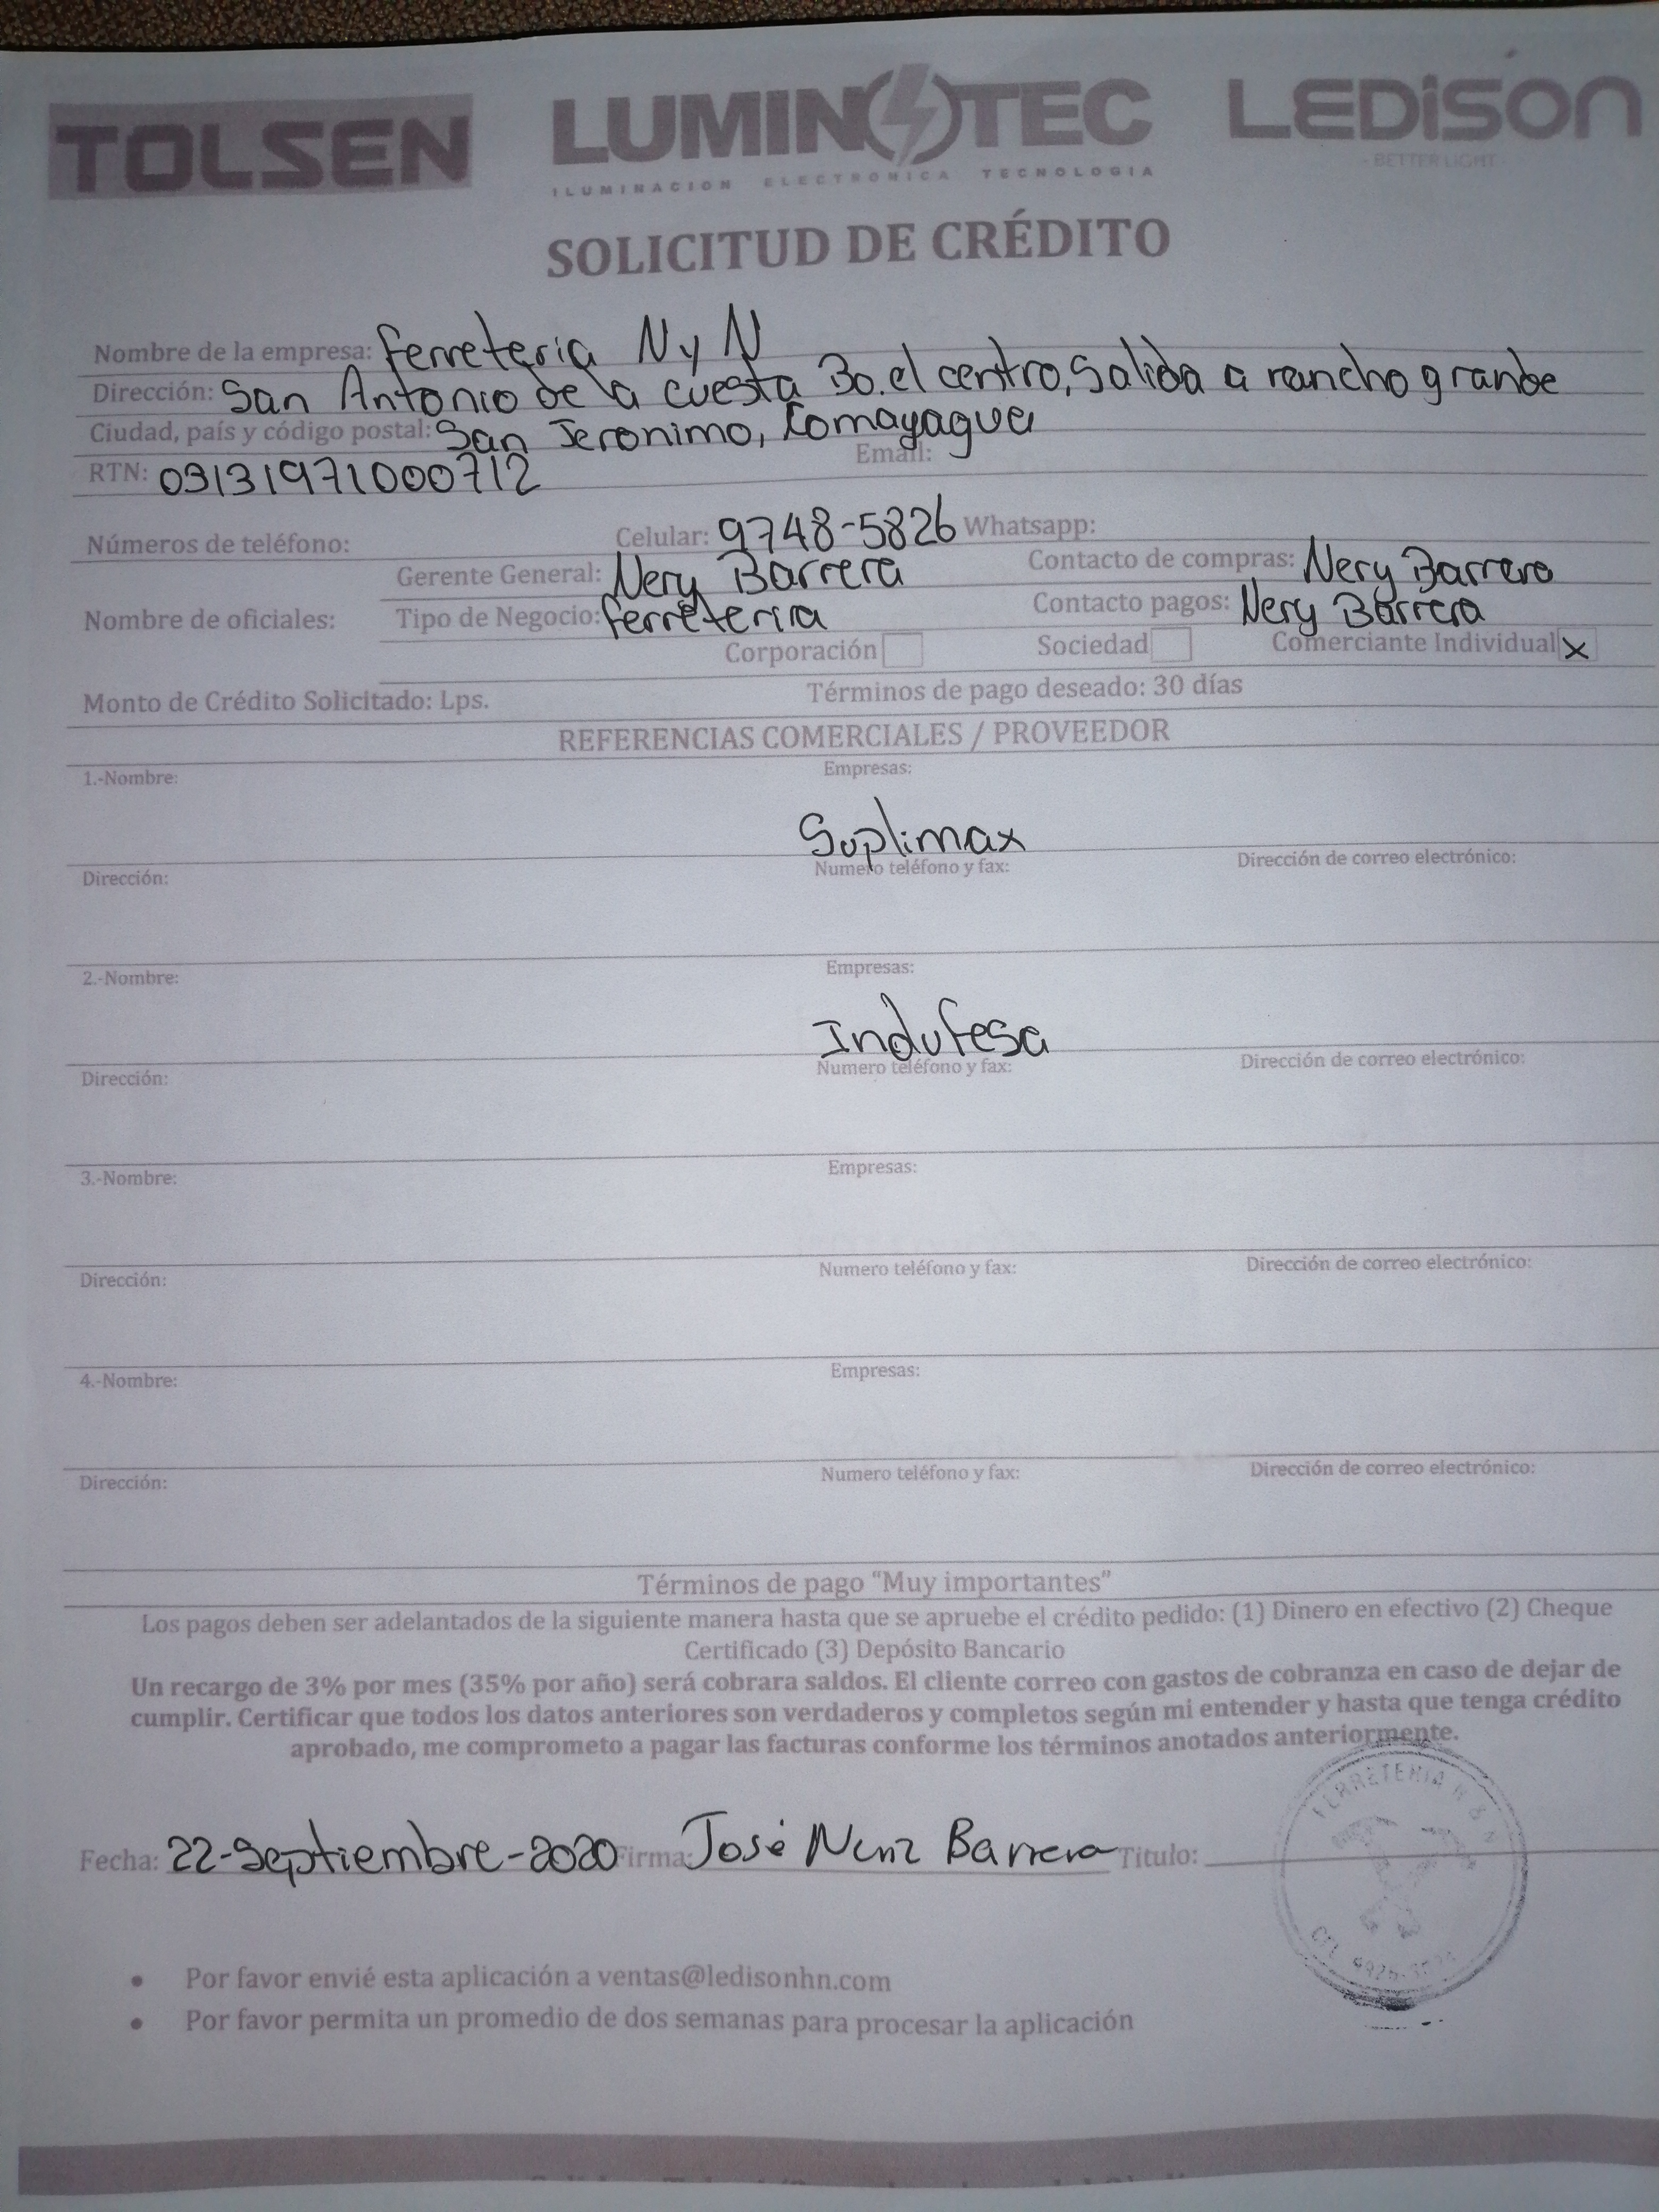 TOLSEN LUMINOTEC LEDISON
ILUMINACION ELECTRONICA TECNOLOGIA - BETTER LIGHT -
SOLICITUD DE CRÉDITO
Nombre de la empresa: ferreteria N y N
Dirección: San Antonio de la cuesta Bo. el centro, Salida a rancho grande
Ciudad, país y código postal: San Jeronimo, Comayagua
RTN: 03131971000712 Email:
Números de teléfono: Celular: 9748-5826 Whatsapp:
Gerente General: Nery Barrera Contacto de compras: Nery Barrera
Nombre de oficiales: Tipo de Negocio: ferreteria Contacto pagos: Nery Barrera
Corporación Sociedad Comerciante Individual x
Monto de Crédito Solicitado: Lps. Términos de pago deseado: 30 días
REFERENCIAS COMERCIALES / PROVEEDOR
1.-Nombre: Empresas:
Suplimax
Dirección: Numero teléfono y fax: Dirección de correo electrónico:
2.-Nombre: Empresas:
Indufesa
Dirección: Numero teléfono y fax: Dirección de correo electrónico:
3.-Nombre: Empresas:
Dirección: Numero teléfono y fax: Dirección de correo electrónico:
4.-Nombre: Empresas:
Dirección: Numero teléfono y fax: Dirección de correo electrónico:
Términos de pago “Muy importantes”
Los pagos deben ser adelantados de la siguiente manera hasta que se apruebe el crédito pedido: (1) Dinero en efectivo (2) Cheque
Certificado (3) Depósito Bancario
Un recargo de 3% por mes (35% por año) será cobrara saldos. El cliente correo con gastos de cobranza en caso de dejar de
cumplir. Certificar que todos los datos anteriores son verdaderos y completos según mi entender y hasta que tenga crédito
aprobado, me comprometo a pagar las facturas conforme los términos anotados anteriormente.
FERRETERIA N & N
Fecha: 22-Septiembre-2020 Firma: José Barrera Titulo:
CEL
• Por favor envié esta aplicación a ventas@ledisonhn.com
• Por favor permita un promedio de dos semanas para procesar la aplicación